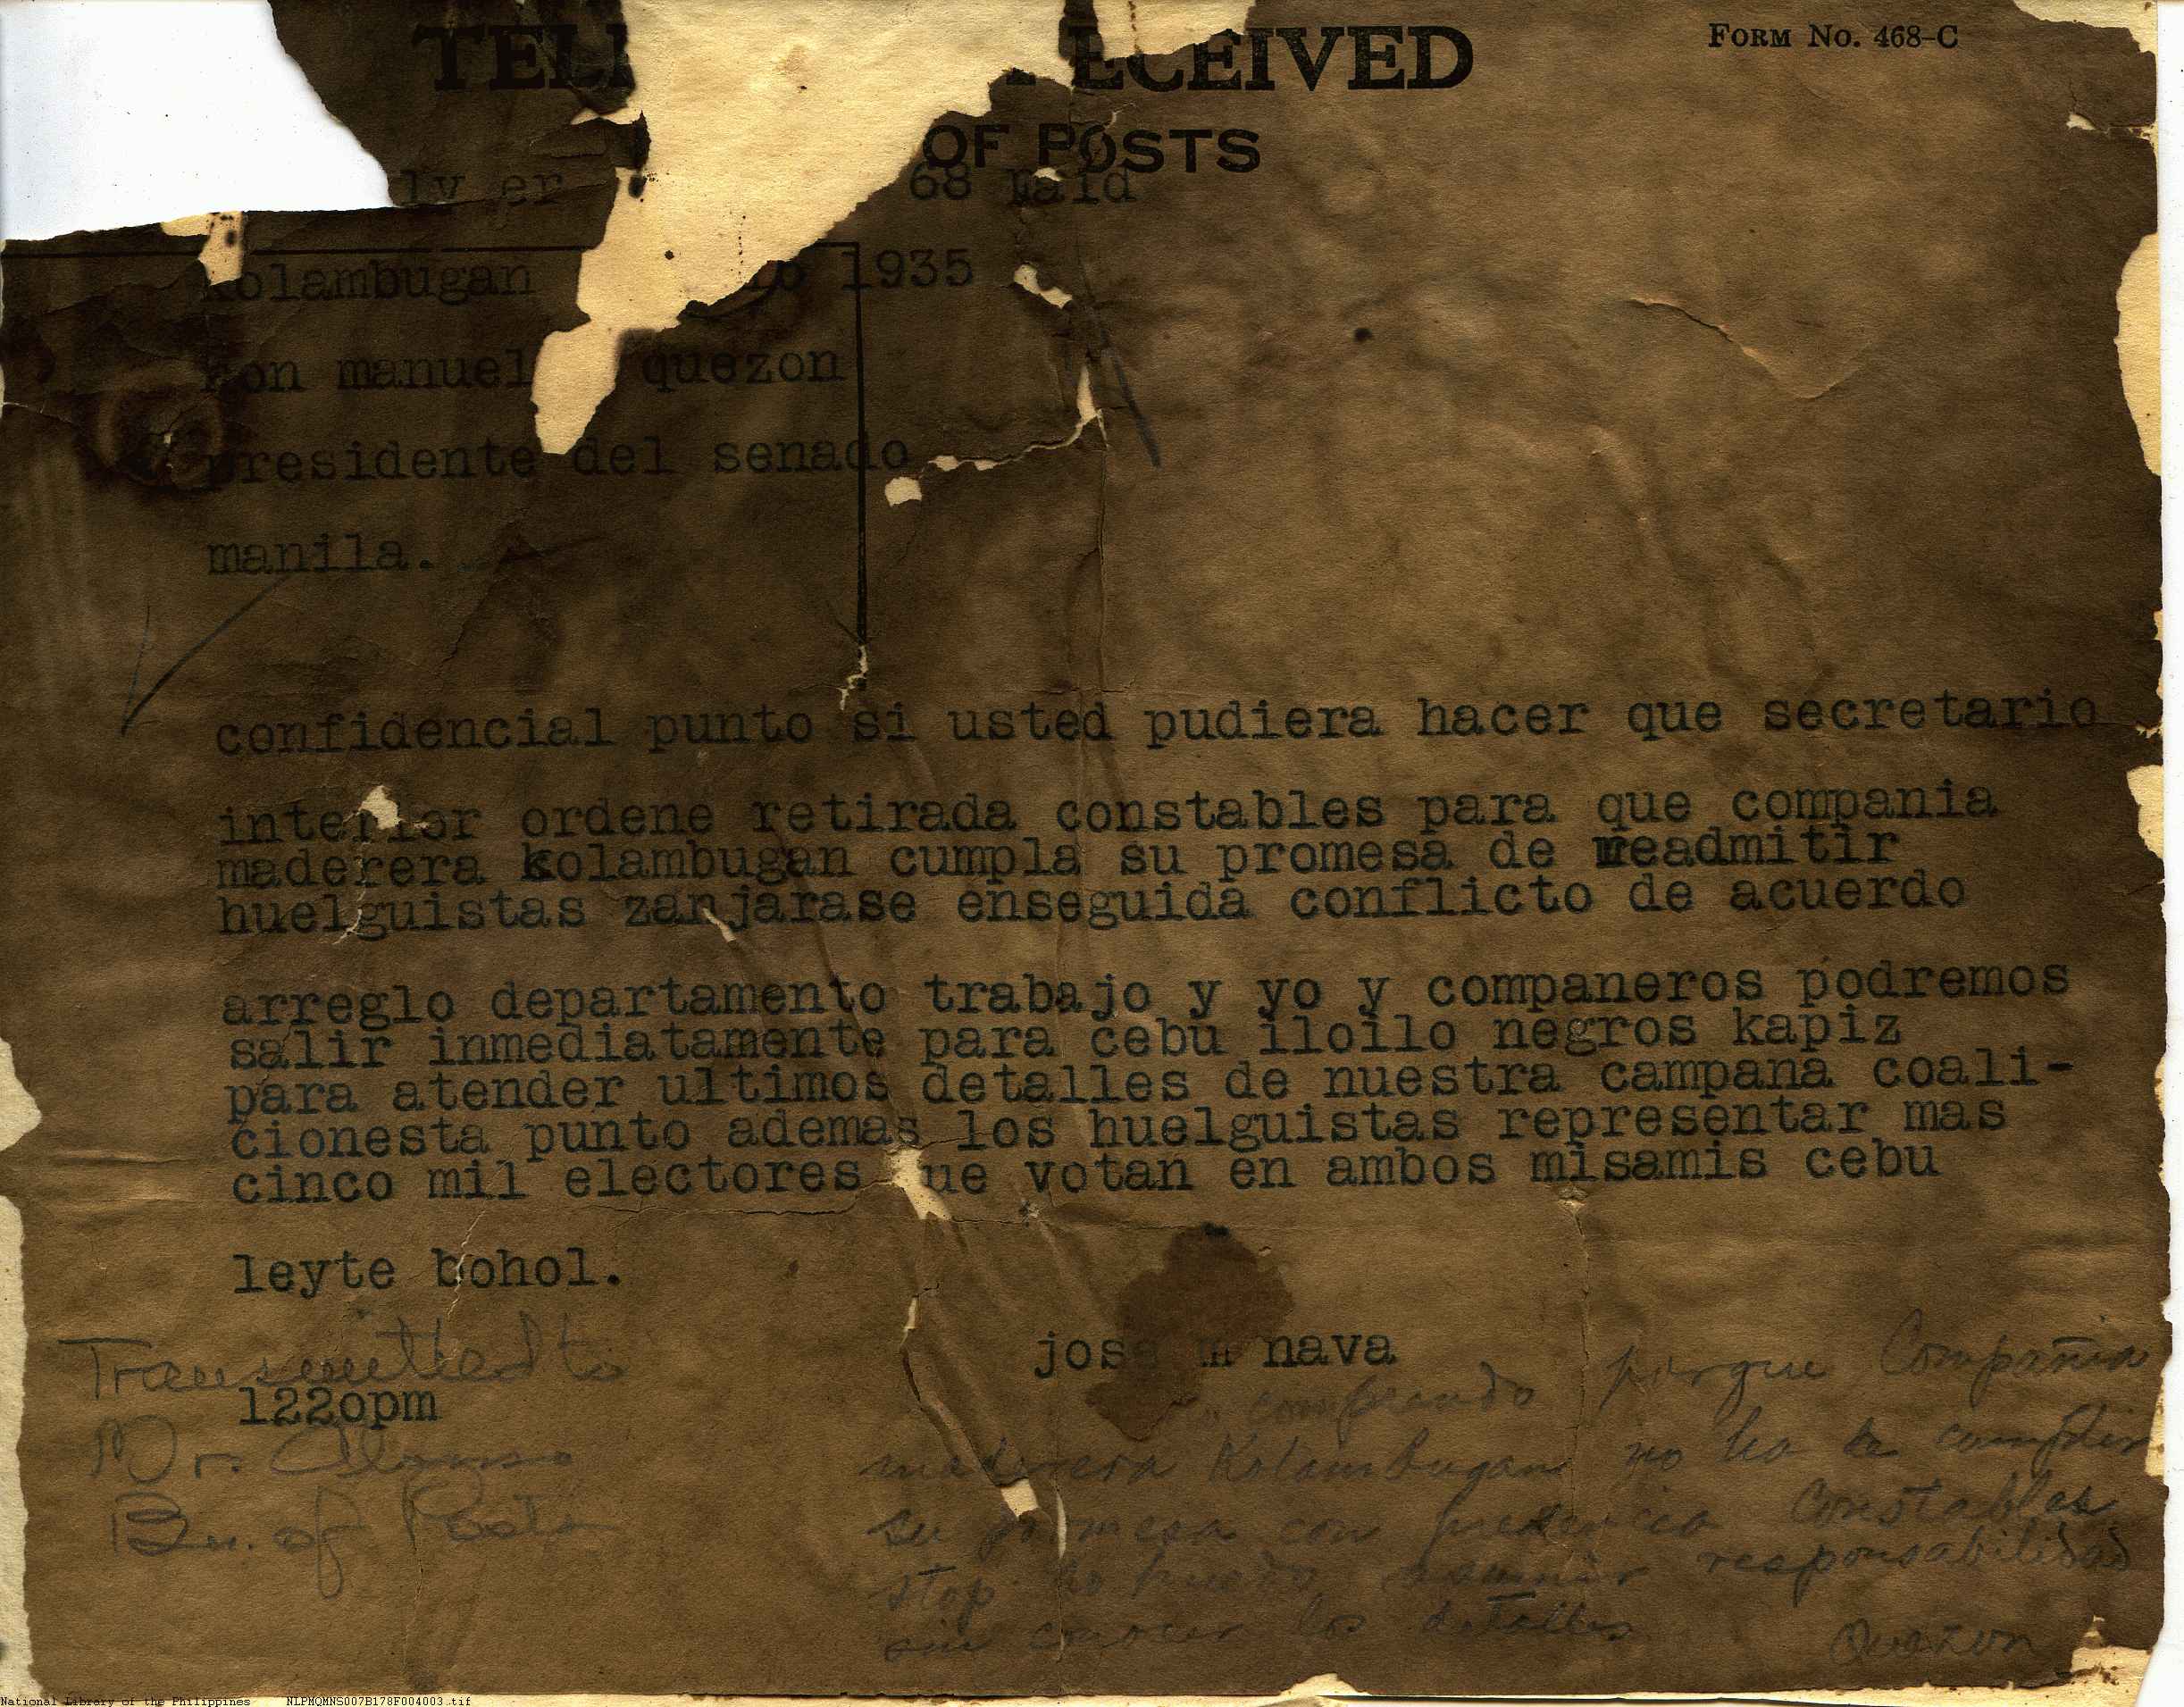 FORM No. 468-C
OF POSTS
68 Paid
kolambugan 1935
manuel quezon
presidente del senado
manila.
confidencial punto si usted pudiera hacer que secretario
interior ordene retirada constables para que compania
maderera kolambugan cumpla su promesa de readmitir
huelguistas zanjarase enseguida conflicto de acuerdo
arreglo departamento trabajo y yo y companeros podremos
salir inmediatamente para cebu iloilo negros kapiz
para atender ultimos detalles de nuestra campana coali-
cionesta punto ademas los huelguistas representar mas
cinco mil electores que votan en ambos misamis cebu
leyte bohol.
jose m nava
Transmitted to
1220pm
Mr. Alonso
Bu. of Posts
comprendo porque Compañia
maderera Kolambugan no ha de cumplir
su promesa con presencia Constables
stop no puedo asumir responsabilidad
sin conocer los detalles
Quezon
National Library of the Philippines NLPMQMNS007B178F004003.tif